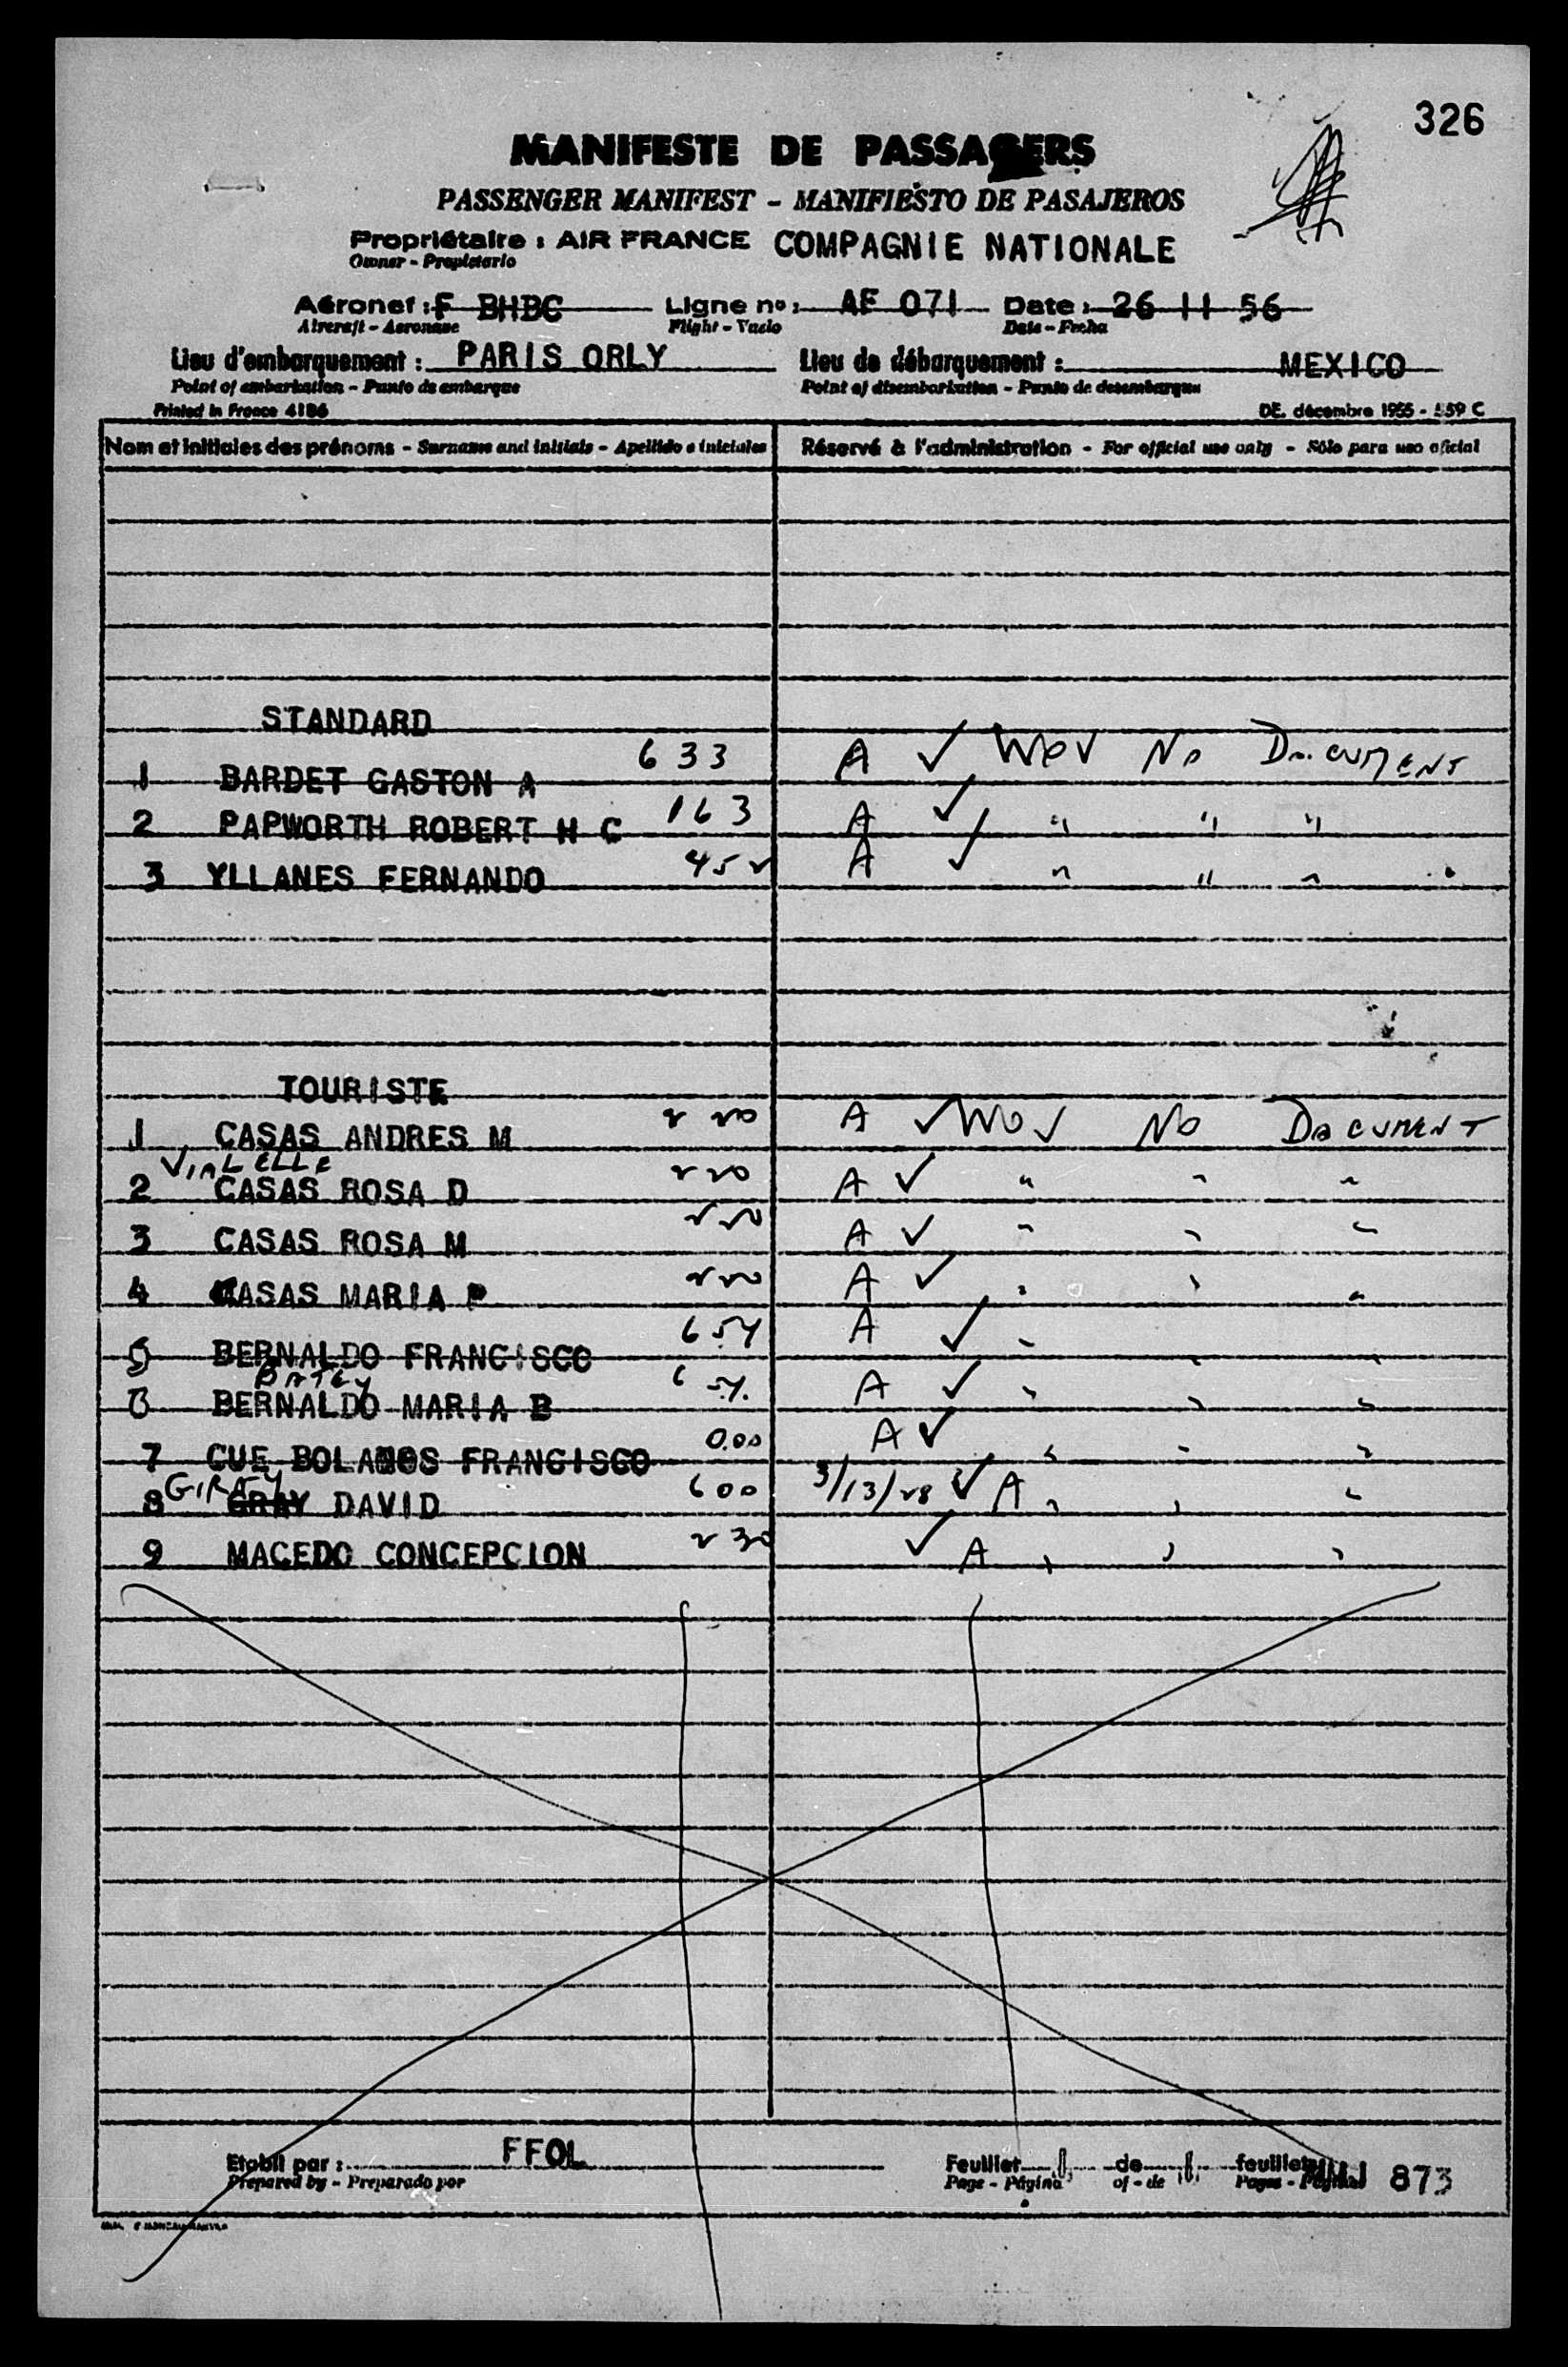 326
MANIFESTE DE PASSAGERS
PASSENGER MANIFEST - MANIFIESTO DE PASAJEROS
Propriétaire : AIR FRANCE COMPAGNIE NATIONALE
Owner - Propietario
Aéronef : F BHBC Ligne no : AF 071 Date : 26 11 56
Aircraft - Aeronave Flight - Vuelo Date - Fecha
Lieu d'embarquement : PARIS ORLY Lieu de débarquement : MEXICO
Point of embarkation - Punto de embarque Point of disembarkation - Punto de desembarque
Printed in France 4186 DE. décembre 1955 - 559 C
Nom et initiales des prénoms - Surname and initials - Apellido e iniciales Réservé à l'administration - For official use only - Sólo para uso oficial
STANDARD
1 BARDET GASTON A 633 A ✓ WOV No DOCUMENT
2 PAPWORTH ROBERT H C 163 A ✓ " " "
3 YLLANES FERNANDO 452 A ✓ " " "
TOURISTE
1 CASAS ANDRES M 220 A ✓ WOV No DOCUMENT
VIALELLE
2 CASAS ROSA D 220 A ✓ " " "
3 CASAS ROSA M 220 A ✓ " " "
4 CASAS MARIA P 220 A ✓ " " "
5 BERNALDO FRANCISCO 654 A ✓ " " "
BATEY
6 BERNALDO MARIA B A ✓ " " "
7 CUE BOLANOS FRANCISCO 0.00 A ✓ " " "
8 GIRAY GRAY DAVID 600 3/13/28 ✓ A " " "
9 MACEDO CONCEPCION 230 ✓ A " " "
Etabli par : FFOL Feuillet 1 de 1 feuillets
Prepared by - Preparado por Page - Página of - de Pages - Páginas 873